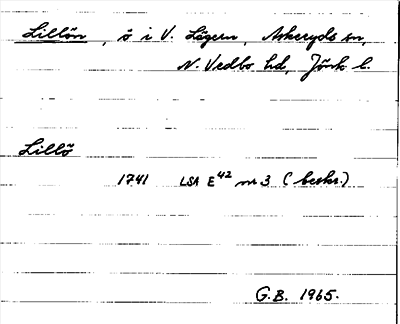 Lillön, ö i V. Lägern, Askeryds sn,
N. Vedbo hd, Jönk l.
Lillö
1741 LSA E42 nr 3 (beskr.)
G.B. 1965.